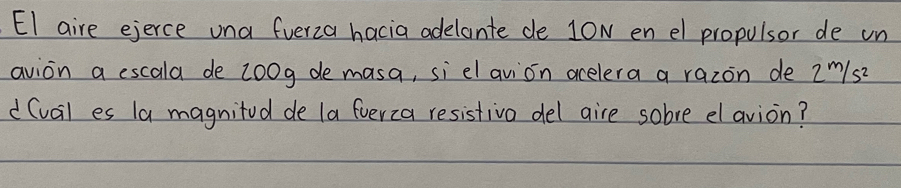 El aire ejerce una fuerza hacia adelante de 10N en el propulsor de un
avión a escala de 200g de masa, si el avión acelera a razón de 2m/s²
¿Cuál es la magnitud de la fuerza resistiva del aire sobre el avión?